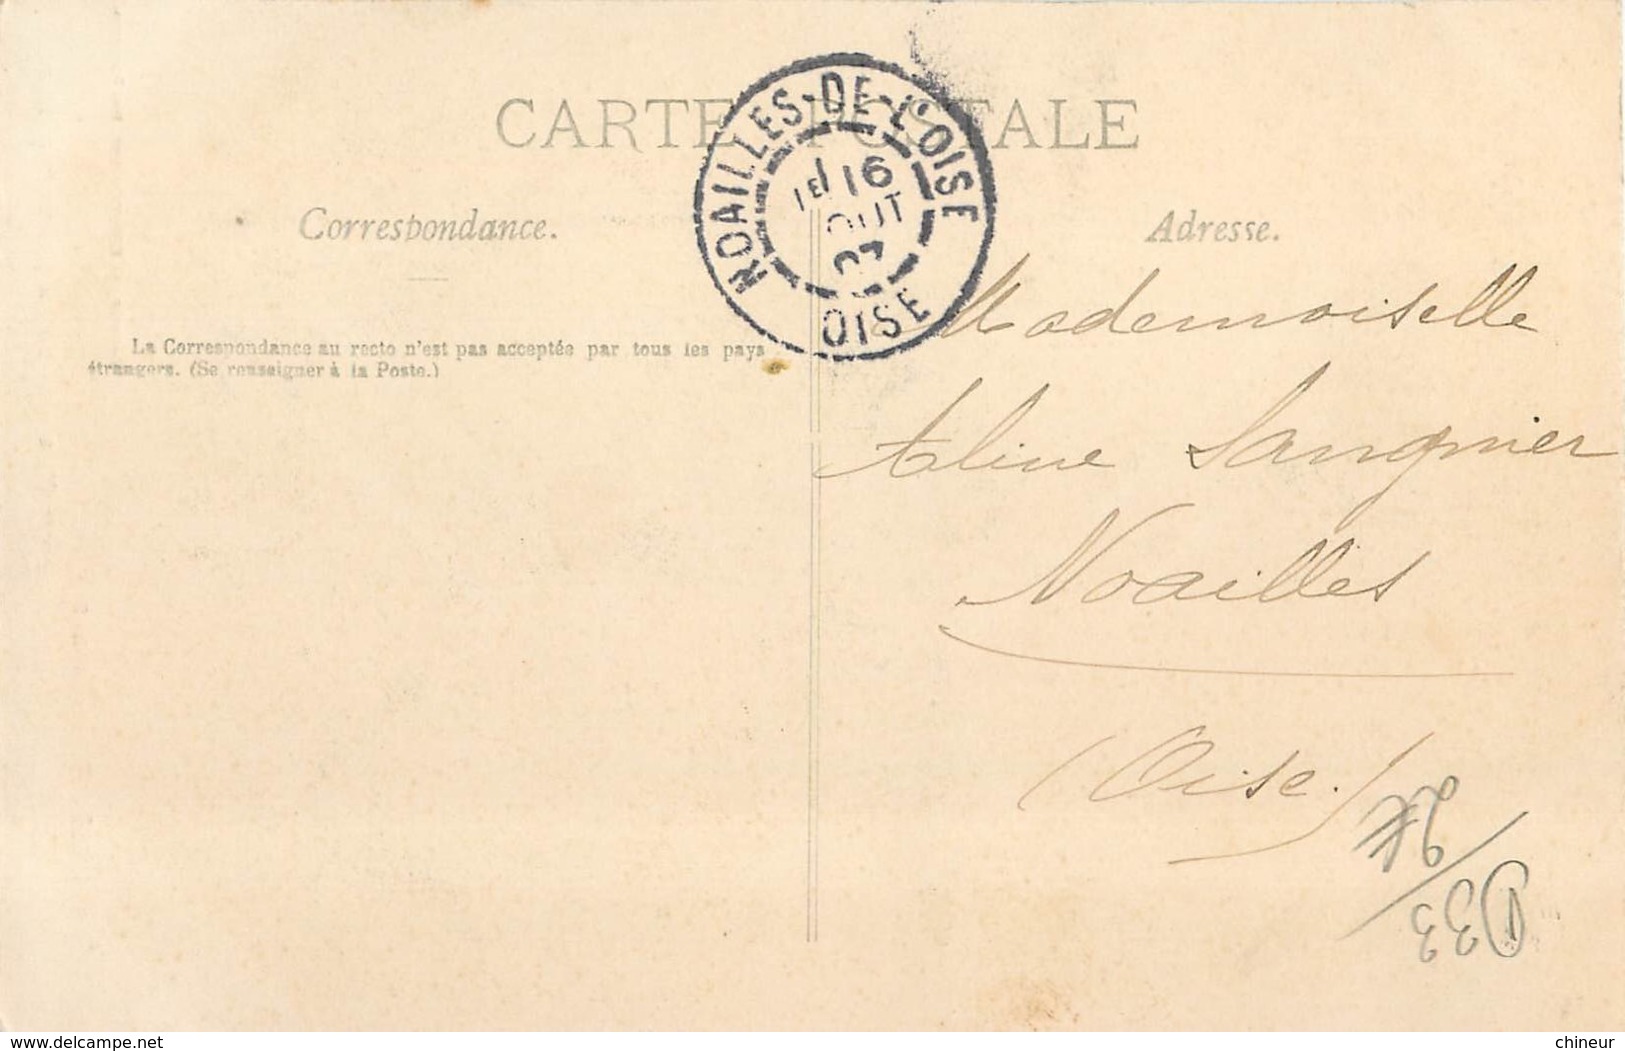 CARTE POSTALE
NOAILLES-DE-L'OISE
1E 16
OUT
07
OISE
Correspondance.
Adresse.
La Correspondance au recto n'est pas acceptée par tous les pays
étrangers. (Se renseigner à la Poste.)
Mademoiselle
Aline Sangnier
Noailles
(Oise.)
2€
D33
delcampe.net
chineur